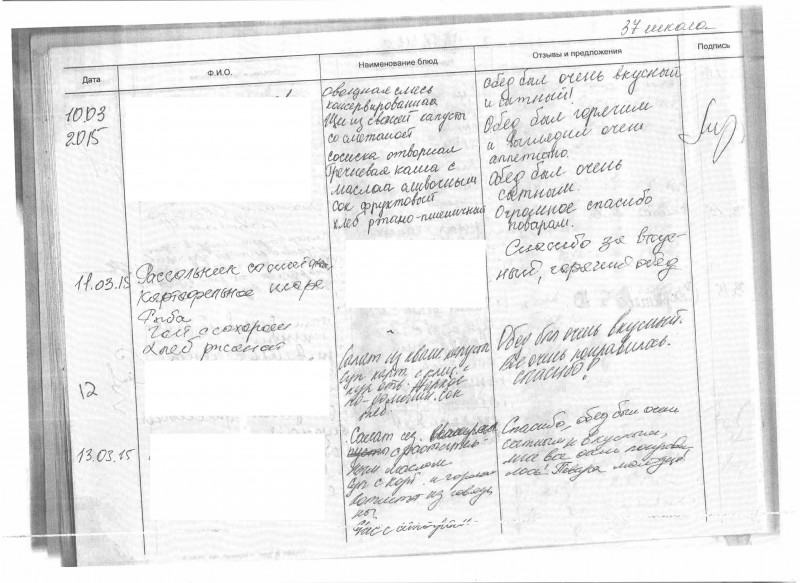 37 школа
Дата
Ф.И.О.
Наименование блюд
Отзывы и предложения
Подпись
10.03
2015
Овощная смесь
консервированная
Щи из свежей капусты
со сметаной
сосиска отварная
Гречневая каша с
маслом сливочным
сок фруктовый
хлеб ржано-пшеничный
Обед был очень вкусный
и сытный!
Обед был горячим
и выглядим очен
аппетитно.
Обед был очень
сытным.
Огромное спасибо
поварам.
Спасибо за вкус-
ный, горячий обед
11.03.15
Рассольник со сметаной
Картофельное пюре
Рыба
Чай с сахаром
Хлеб ржаной
12
Салат из кваш. капусты
Суп карт. с
сок
хлеб
Обед был очень вкусный.
Все очень понравилось.
Спасибо!
13.03.15
Салат из
с раститель-
ным маслом
Суп с карт. и горохом
из говяди
ны
Спасибо, обед был очень
сытным и вкусным,
мне все очень понрави-
лось! Повара молодцы!